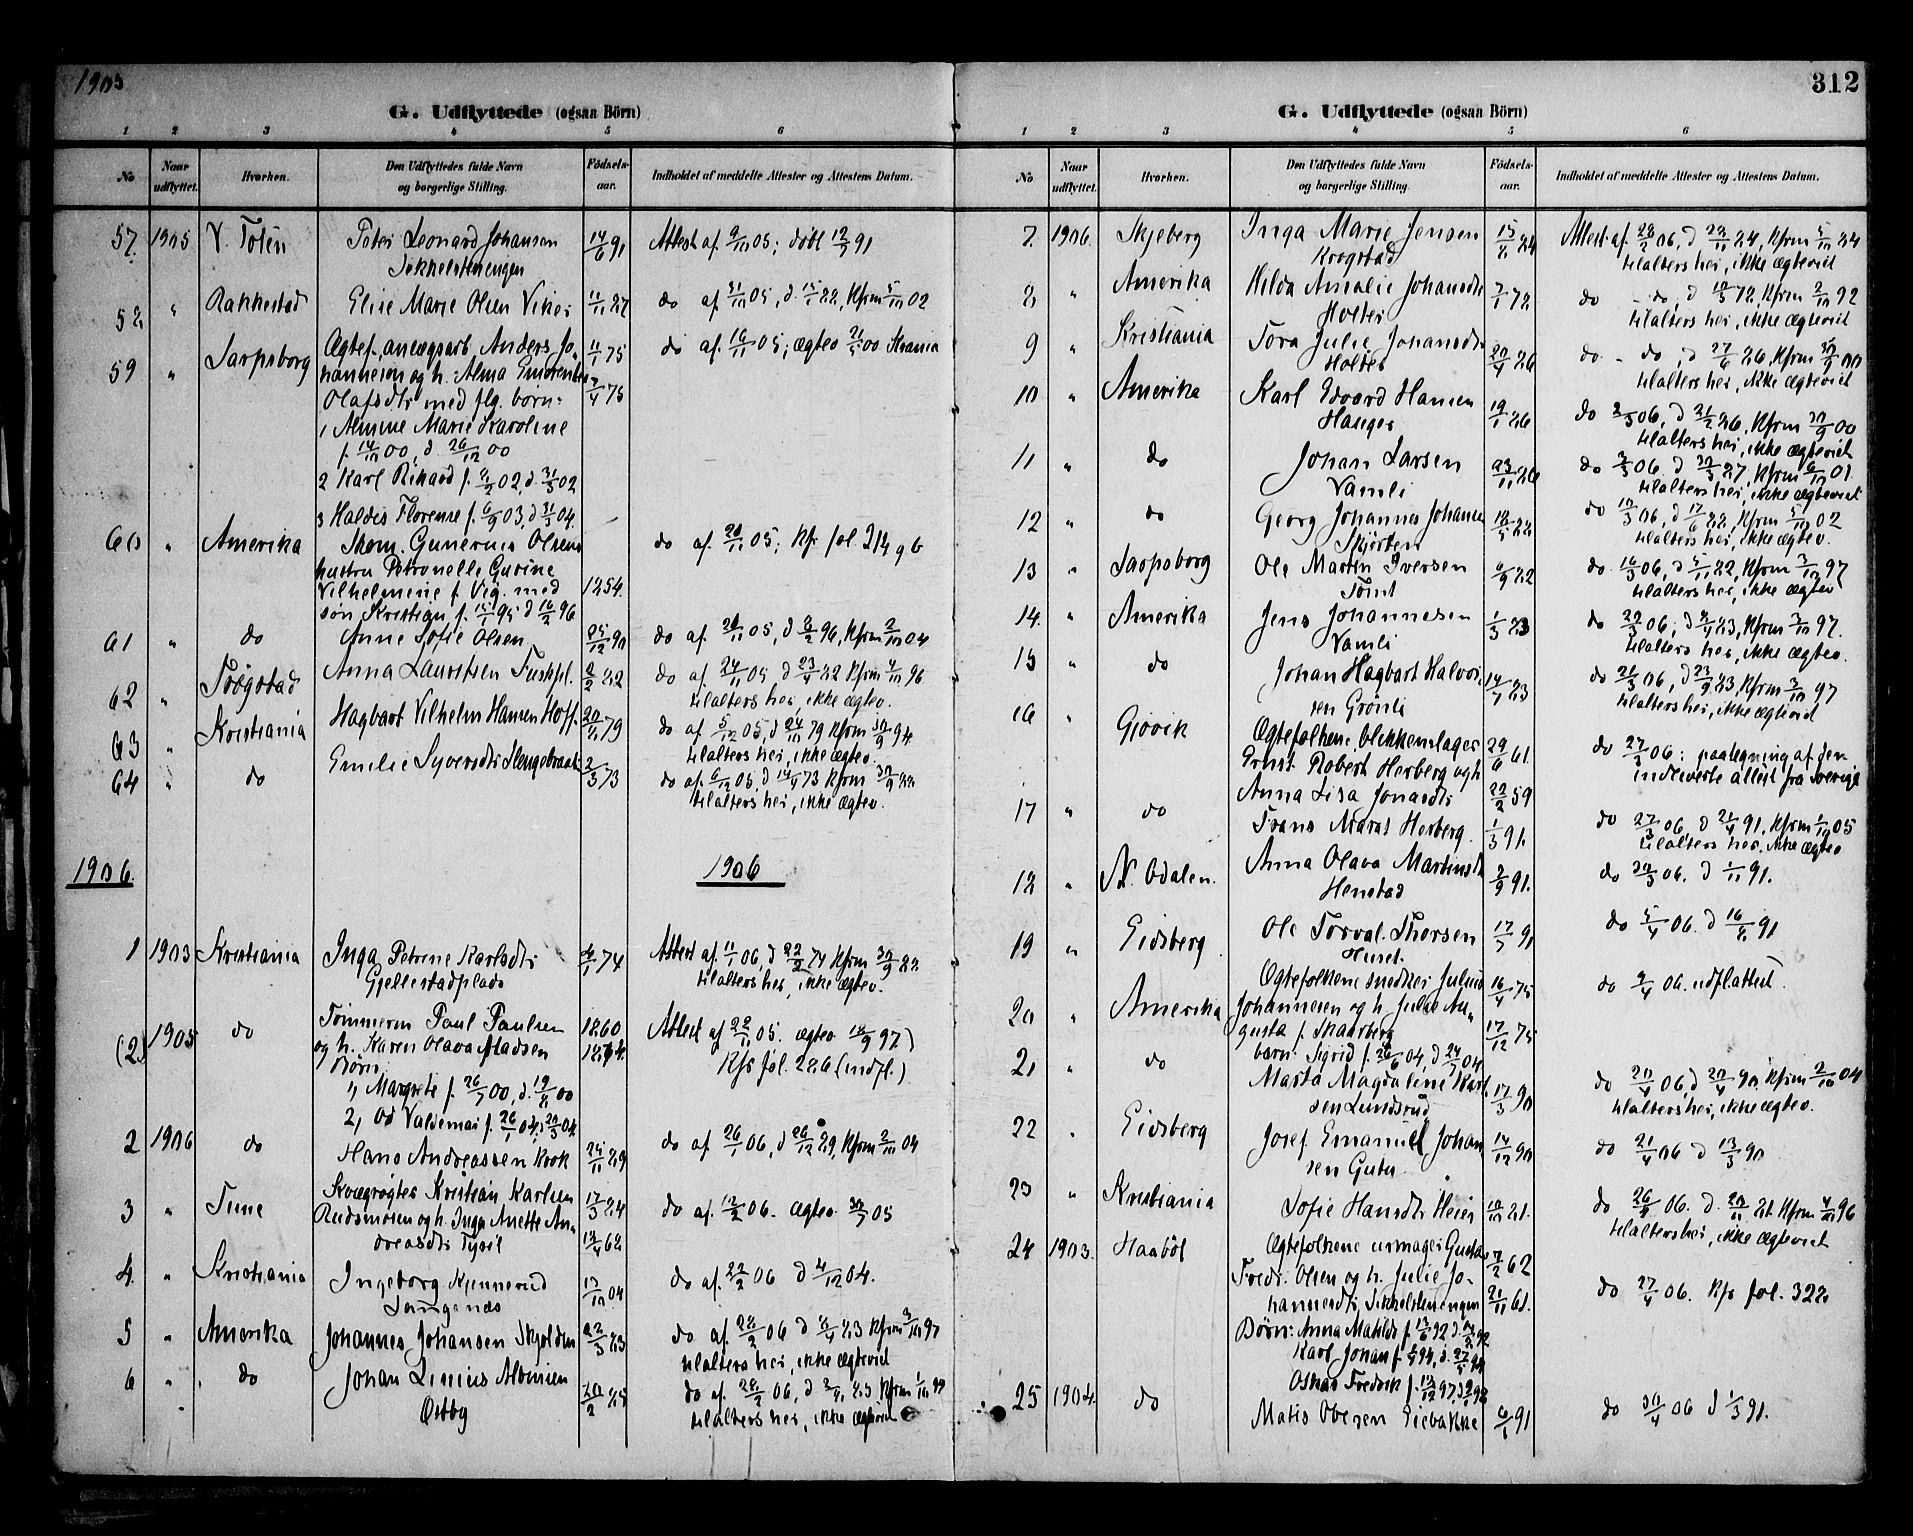 1905
312
G. Udflyttede (ogsaa Börn)
1 2 3 4 5 6
No
Naar udflyttet.
Hvorhen.
Den Udflyttedes fulde Navn og borgerlige Stilling.
Födsels-aar.
Indholdet af meddelte Attester og Attestens Datum.
57. 1905 V. Toten Peter Leonard Johansen 14/6 91 Attest af 9/10 05; döbt 12/7 91
58 " Rakkestad Elise Marie Olsen Viker 11/11 87 do af 31/10 05, d. 15/1 88, Kfrm 5/10 02
59 " Sarpsborg Ægtef. anlægsarb. Anders Jo- 11/1 75 do af 16/11 05; ægtev 21/5 00 Krania
hannesen og h. Alma
Olafsdtr med flg. börn: 7/4 75
1 Almine Marie Karoline
f. 14/10 00, d. 26/12 00
2 Karl Rikard f. 8/2 02, d. 31/3 02
3 Haldis Florense f. 6/9 03, d. 31/3 04
60 " Amerika Skom. Gunerius Olsens do af 20/11 05; Kfr fol. 214 q 6
hustru Petronelle Gurine
Vilhelmine f. Vig. med 1854.
sön Kristian f. 15/1 95 d 16/2 96
61 " do Anne Sofie Olsen 25/12 90 do af 20/11 05, d 8/2 96, Kfrm 2/10 04
62 " Trögstad Anna Lauritsen 2/2 82 do af 24/11 05 d 23/4 82 Kfrm 4/10 96
tilalters her, ikke ægtev.
63 " Kristiania Hagbart Vilhelm Hansen Hoff 20/11 79 do af 5/12 05, d 24/10 79 Kfrm 30/9 94
tilalters her, ikke ægtev.
64 " do Emilie Syversdtr Slengebraat 2/3 73 do af 6/12 05, d 14/4 73 Kfrm 30/9 88
tilalters her, ikke ægtev.
1906. 1906
1 1903 Kristiania Inga Petrine Karlsdtr 4/1 74 Attest af 11/1 06, d 22/2 74 Kfrm 30/9 88
Gjellestadplads tilalters her, ikke ægtev.
(2) 1905 do Tömmerm Paul Paulsen 1860 Attest af 22/11 05. ægtev 18/9 97)
og h. Karen Olava Madsen 1874. Kfr fol. 286 (indfl.)
Börn:
1, Margrete f. 26/7 00, d. 19/8 00
2, Od Valdemar f. 26/1 04, d 20/3 04.
2 1906 do Hans Andreassen Krok 25/11 89 do af 26/1 06, d 26/12 89, Kfrm 2/10 04
3 " Tune Skrögter Kristian Karlsen 17/3 84 do af 12/2 06. ægtev. 30/7 05
Rudsmosen og h. Inga Anette An-
dreasdtr 13/4 62
4. " Kristiania Ingeborg Kjennerud 13/10 04 do af 22/2 06 d 4/12 04.
Langenæs
5 " Amerika Johannes Johansen Skjolden 22/3 83 do af 28/2 06 d 8/4 83 Kfrm 3/10 97
tilalters her, ikke ægteviet
6 " do Johan Linius Albinsen 20/2 85 do af 28/2 06, d 3/4 85 Kfrm 1/10 99
Østby tilalters her, ikke ægteviet
G. Udflyttede (ogsaa Börn)
1 2 3 4 5 6
No
Naar udflyttet.
Hvorhen.
Den Udflyttedes fulde Navn og borgerlige Stilling.
Födsels-aar.
Indholdet af meddelte Attester og Attestens Datum.
7. 1906. Skjeberg Inga Marie Jensen 15/8 84 Attest af 28/2 06, d 23/11 84, Kfrm 5/10 84
Krogstad tilalters her, ikke ægteviet
8 " Amerika Hilda Amalie Johansdtr 7/1 78 do - do, d 10/3 78, Kfrm 2/10 92
Holter tilalters her, ikke ægteviet
9 " Kristiania Tora Julie Johansdtr 20/4 86 do - do, d 27/6 86, Kfrm 30/9 00
Holter tilalters her, ikke ægteviet
10 " Amerika Karl Edvard Hansen 19/1 86 do 2/3 06, d 21/2 86, Kfrm 30/9 00
Hauger tilalters her, ikke ægteviet
11 " do Johan Larsen 23/11 86 do 3/3 06. d 30/3 87, Kfrm 6/10 01
Vamli tilalters her, ikke ægteviet
12 " do Georg Johannes Johansen 18/5 88 do 10/3 06, d 17/6 88, Kfrm 5/10 02
tilalters her, ikke ægtev.
13 " Sarpsborg Ole Martin Iversen 6/9 82 do. 16/3 06, d 5/11 82, Kfrm 3/10 97
Tomt tilalters her, ikke ægtev
14. " Amerika Jens Johannesen 1/3 83 do 22/3 06; d 8/4 83, Kfrm 3/10 97.
Vamli tilalters her, ikke ægtev.
15 " do Johan Hagbart Halvor- 14/7 83 do 26/3 06, d 23/9 83, Kfrm 3/10 97
sen Grönli tilalters her, ikke ægteviet
16 " Gjövik Ægtefolkene, blikkenslager 29/6 61. do 27/3 06; paategning af den
Ernst Robert Herberg og h indleverte attest fra Sverige
Anna Lisa Jonasdtr 22/2 59
17 " do Frans Herberg 1/3 91. do 27/3 06, d 21/4 91. Kfrm 1/10 05
tilalters her. ikke ægtev
18 " N. Odalen. Anna Olava Martinsdtr 2/9 91. do 30/3 06. d 1/11 91.
Henstad
19 " Eidsberg Ole Torval. Thorsen 17/7 91 do 5/4 06. d 16/8 91
Huset
20 " Amerika Ægtefolkene snedker Julius 16/4 75 do 9/4 06. udfl.attest.
Johannesen og h. Julie Au-
gusta f. Skaarberg 17/12 75
barn: Sigrid f. 26/6 04, d 24/7 04
21 " do Marta Magdalene Karl- 17/3 90 do 20/4 06, d 20/4 90, Kfrm 2/10 04
sen Lundsrud tilalters her, ikke ægtev.
22 " Eidsberg Josef Emanuel Johan 14/12 90 do 21/4 06 d 13/3 90
sen Gutu
23 " Kristiania Sofie Hansdtr Heier 10/10 81. do 26/4 06. d. 20/11 81 Kfrm 4/10 96
tilalters her, ikke ægteviet
24 1903. Haaböl Ægtefolkene urmager Gustav 7/2 62 do 27/4 06. Kfr fol. 328
Fredr. Olsen og h. Julie Jo-
hannesdtr, 21/11 61.
Börn: Anna Matilde f. 13/6 92
Karl Johan
Oskar Fredrik
25 1904. do Matis Olsen 6/1 91 do 30/4 06 d 1/3 91.